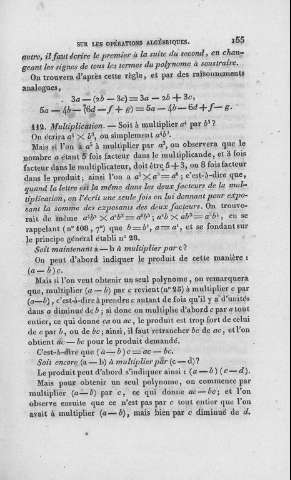 SUR LES OPÉRATIONS ALGÉBRIQUES. 155
autre, il faut écrire le premier à la suite du second, en chan-
geant les signes de tous les termes du polynome à soustraire.
On trouvera d'après cette règle, et par des raisonnements
analogues,
3a — (2b — 3c) = 3a — 2b + 3c,
5a — 4b — (6d — f + g) = 5a — 4b — 6d + f — g.
112. Multiplication. — Soit à multiplier a⁴ par b³ ?
On écrira a⁴ × b³, ou simplement a⁴b³.
Mais si l'on a a⁵ à multiplier par a³, on observera que le
nombre a étant 5 fois facteur dans le multiplicande, et 3 fois
facteur dans le multiplicateur, doit être 5 + 3, ou 8 fois facteur
dans le produit; ainsi l'on a a⁵ × a³ = a⁸; c'est-à-dire que,
quand la lettre est la même dans les deux facteurs de la mul-
tiplication, on l'écrit une seule fois en lui donnant pour expo-
sant la somme des exposants des deux facteurs. On trouve-
rait de même
se
rappelant (n° 108, 7°) que b = b¹, a = a¹, et se fondant sur
le principe général établi n° 26.
Soit maintenant a — b à multiplier par c ?
On peut d'abord indiquer le produit de cette manière :
(a — b) c.
Mais si l'on veut obtenir un seul polynome, on remarquera
que, multiplier (a — b) par c revient (n° 25) à multiplier c par
(a—b), c'est-à-dire à prendre c autant de fois qu'il y a d'unités
dans a diminué de b; si donc on multiplie d'abord c par a tout
entier, ce qui donne ca ou ac, le produit est trop fort de celui
de c par b, ou de bc; ainsi, il faut retrancher bc de ac, et l'on
obtient ac — bc pour le produit demandé.
C'est-à-dire que (a — b) c = ac — bc.
Soit encore (a — b) à multiplier par (c — d)?
Le produit peut d'abord s'indiquer ainsi : (a — b) (c — d).
Mais pour obtenir un seul polynome, on commence par
multiplier (a — b) par c, ce qui donne ac — bc; et l'on
observe ensuite que ce n'est pas par c tout entier que l'on
avait à multiplier (a — b), mais bien par c diminué de d.